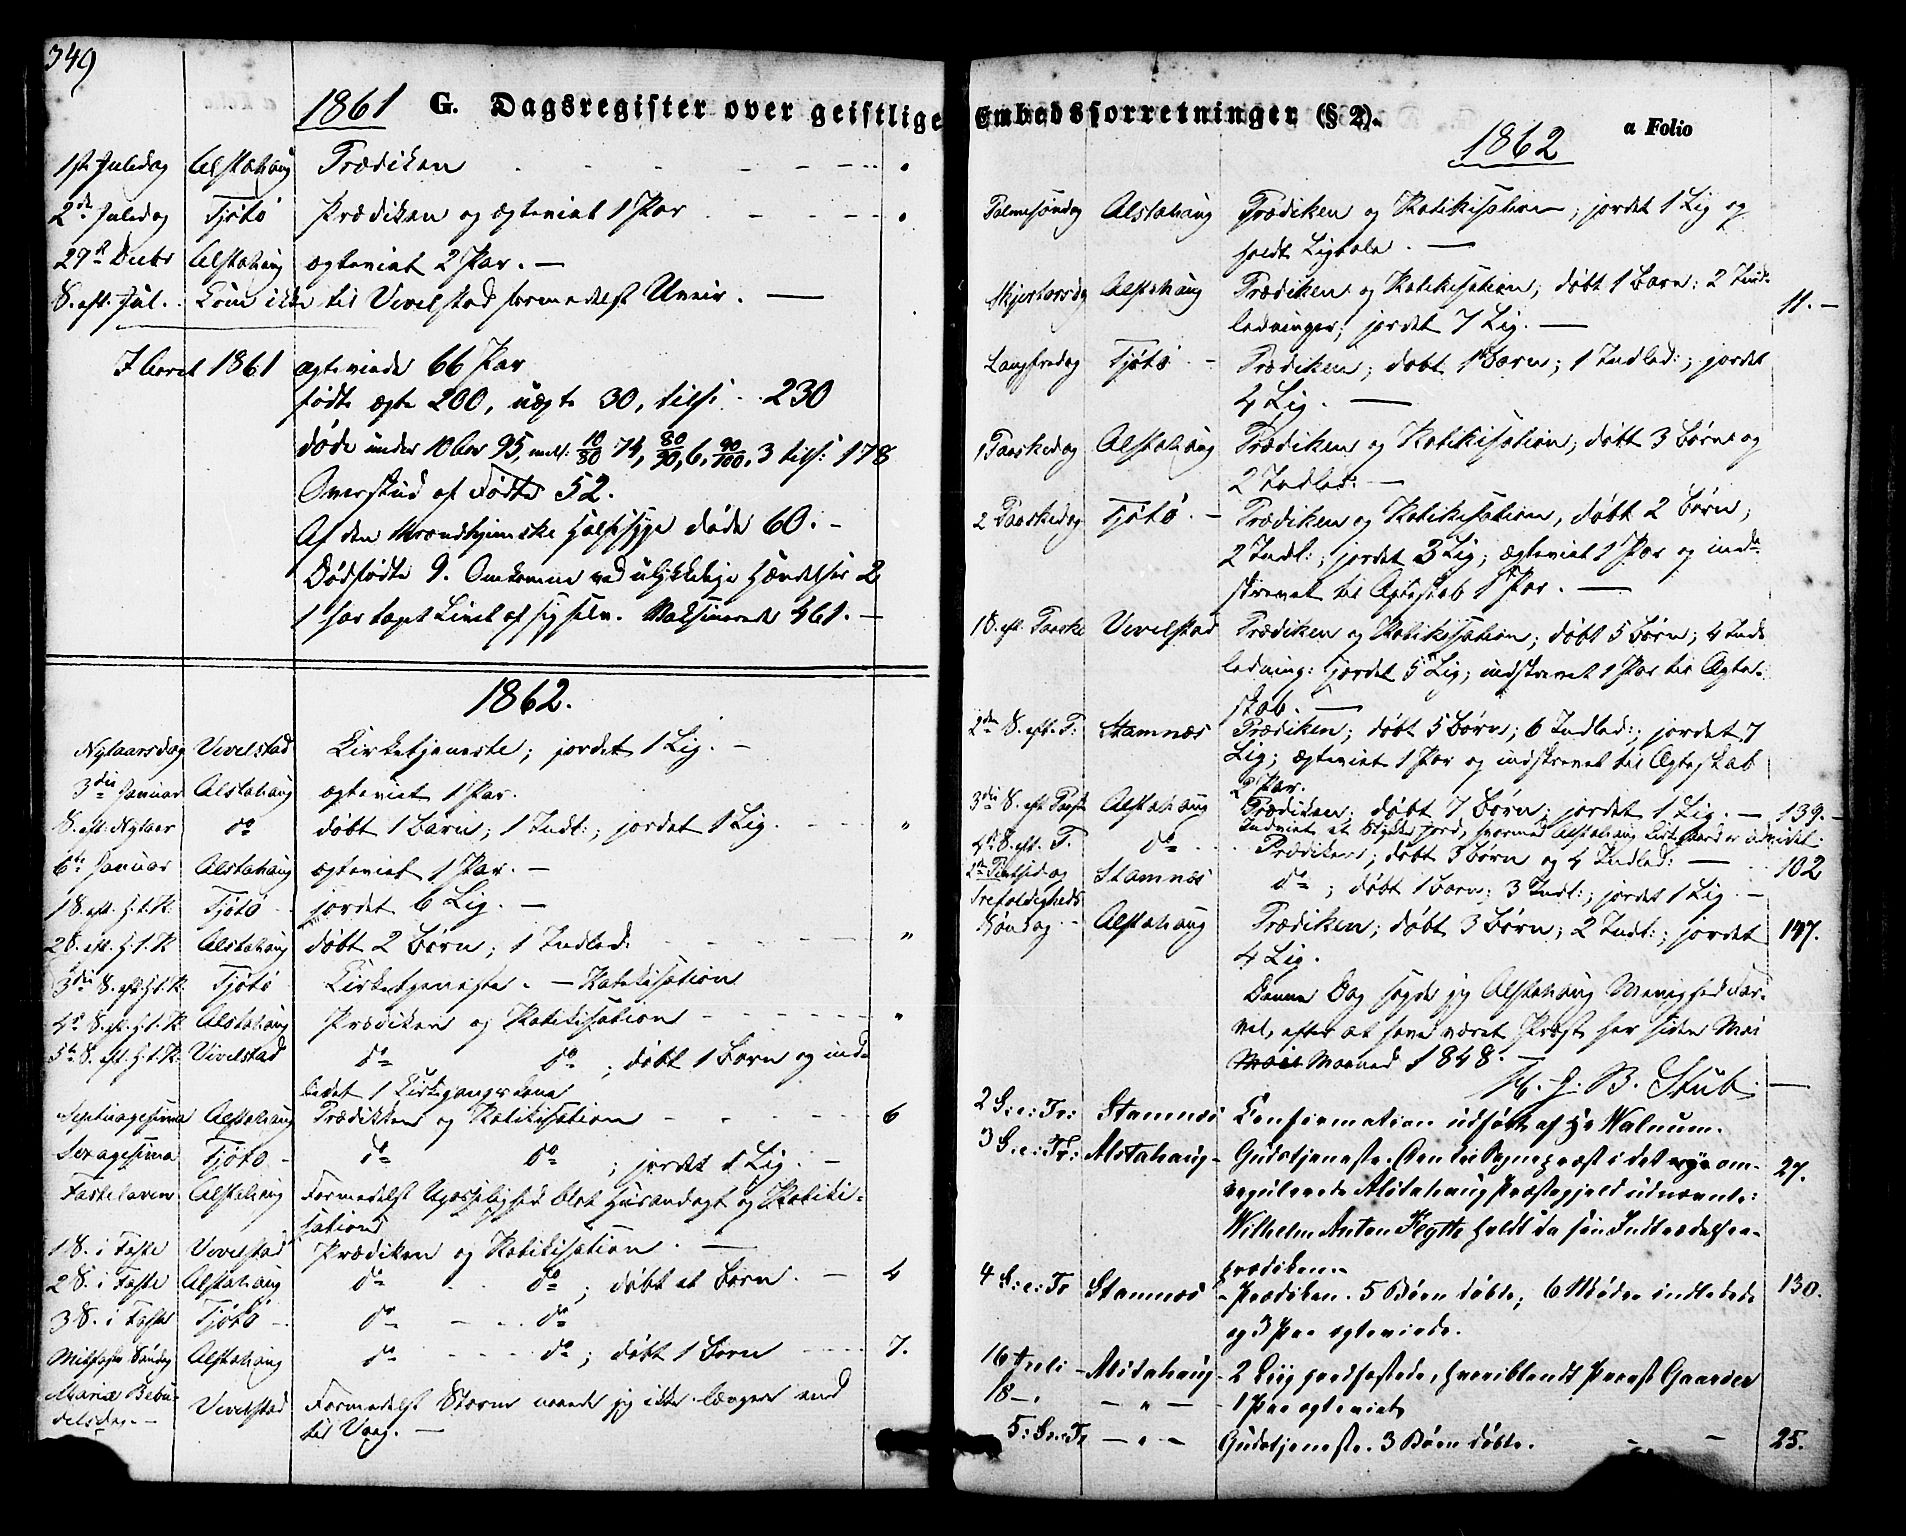 349
1861 G. Dagsregister over geistlige Embedsforretninger (§ 2).
1ste Juledag Alstahoug Prædiken
2den Juledag Tjötö Prædiken og ægteviet 1 Par
29de Decbr Alstahoug ægteviet 2 Par. —
S. eft. Jul. Kom ikke til Vevelstad formedelst Uveir. —
I Aaret 1861 ægteviede 66 Par
fødte ægte 200, uægte 30, tils: 230
døde under 10 Aar 95, mell: 10/80 74, 80/90, 6, 90/100, 3 tils: 178
Overskud af Fødte 52.
Af den Throndhjemske Halssyge døde 60. –
Dødfødte 9. Omkomne ved ulykkelige Hændelser 2
1 har taget Livet af sig selv. Vaksinerede 461. —
1862.
Nytaarsdag Vevelstad Kirketjeneste; jordet 1 Lig. –
3die Januar Alstahoug ægteviet 1 Par.
S. eft. Nytaar do døbt 1 Barn; 1 Indl:; jordet 1 Lig. "
6te Januar Alstahoug ægteviet 1 Par. –
1 S. eft. H.3.K: Tjötö jordet 6 Lig. –
2 S. eft. H.3.K Alstahoug døbt 2 Børn; 1 Indled: "
3die S. eft. H.3.K. Tjötö Kirketjeneste. – Katekisation
4de S. eft. H.3.K. Alstahoug Prædiken og Katekisation "
5te S. eft. H.3.K: Vevelstad do do; døbt 1 Barn og ind-
ledet 1 Kirkegangskone
Septuagesima Alstahoug Prædiken og Katekisation 6
Sexagesima Tjötö do do; jordet 1 Lig. –
Fastelaven Alstahoug Formedelst Upasselighed blot Husandagt og Kateki-
sation
1 S. i Faste Vevelstad Prædiken og Katekisation. —
2 S. i Faste Alstahoug do do; døbt et Barn. – 4
3 S. i Faste Tjötö do do
Midfaste Søndag Alstahoug do do; døbt 1 Barn 7.
Mariæ Bebu-
delsdag. – Vevelstad Formedelst Storm naaede jeg ikke længere end
til Vaag. —
1862 a Folio
Palmesøndag Alstahoug Prædiken og Katekisation; jordet 1 Lig og
holdt Ligtale. —
Skjertorsdag Alstahoug Prædiken og Katekisation; døbt 1 Barn; 2 Ind-
ledninger; jordet 7 Lig. — 11. –
Langfredag Tjötö – Prædiken; døbt 1 Barn; 1 Indled:; jordet
4 Lig. —
1 Paaskedag Alstahoug Prædiken og Katekisation; døbt 3 Børn og
2 Indled: –
2 Paaskedag Tjötö. – Prædiken og Katekisation, døbt 2 Børn;
2 Indl:; jordet 3 Lig; ægteviet 1 Par og ind-
skrevet til Ægteskab 1 Par. —
1 S. eft. Paaske Vevelstad Prædiken og Katekisation; døbt 5 Børn; 4 Ind-
ledning: jordet 5 Lig; indskrevet 1 Par til Ægte-
skab. —
2den S. eft. P: Stamnæs Prædiken; døbt 5 Børn; 6 Indled:; jordet 7
Lig; ægteviet 1 Par og indskrevet til Ægteskab
2 Par.
3die S. eft. Paask Alstahoug Prædiken; døbt 7 Børn; jordet 1 Lig. – 139. –
Indviet et Stykke Jord, hvormed Alstahoug Kirkegaard er udvidet.
4de S. eft. P. do Prædiken; døbt 3 Børn og 4 Indled: — 102
Pintsedag Stamnæs do; døbt 1 Barn; 3 Indl:; jordet 1 Lig –
Trefoldigheds
Søndag – Alstahoug Prædiken; døbt 3 Børn; 2 Indl:; jordet 147.
4 Lig.
Denne Dag sagde jeg Alstahoug Menighed Far-
vel, efter at have været Præst her siden Mai
Maaned 1848. –
H. J. B. Stub. —
2 S: e: Tr: Stamnæs Confirmation udført af Hr Walnum.
3 S. e: Tr: Alstahaug – Gudstjeneste. Den til Sognepræst i det nye om-
regulerede Alstahaug Præstegjeld udnævnte: 27.
Wilhelm Anton Flytte holdt da sin Indtrædelses-
prædiken.
4 S: e: Tr Stamnæs – Prædiken. 5 Børn døbte; 6 Mødre indledede 130.
og 3 Par ægteviede.
16 Juli – Alstahaug – 2 Liig jordfæstede, hvoriblandt Provst Gaarder
18 – " — " — – 1 Par ægteviet
5: S: e: Tr — " — Gudstjeneste. 3 Børn døbte. – – 25.